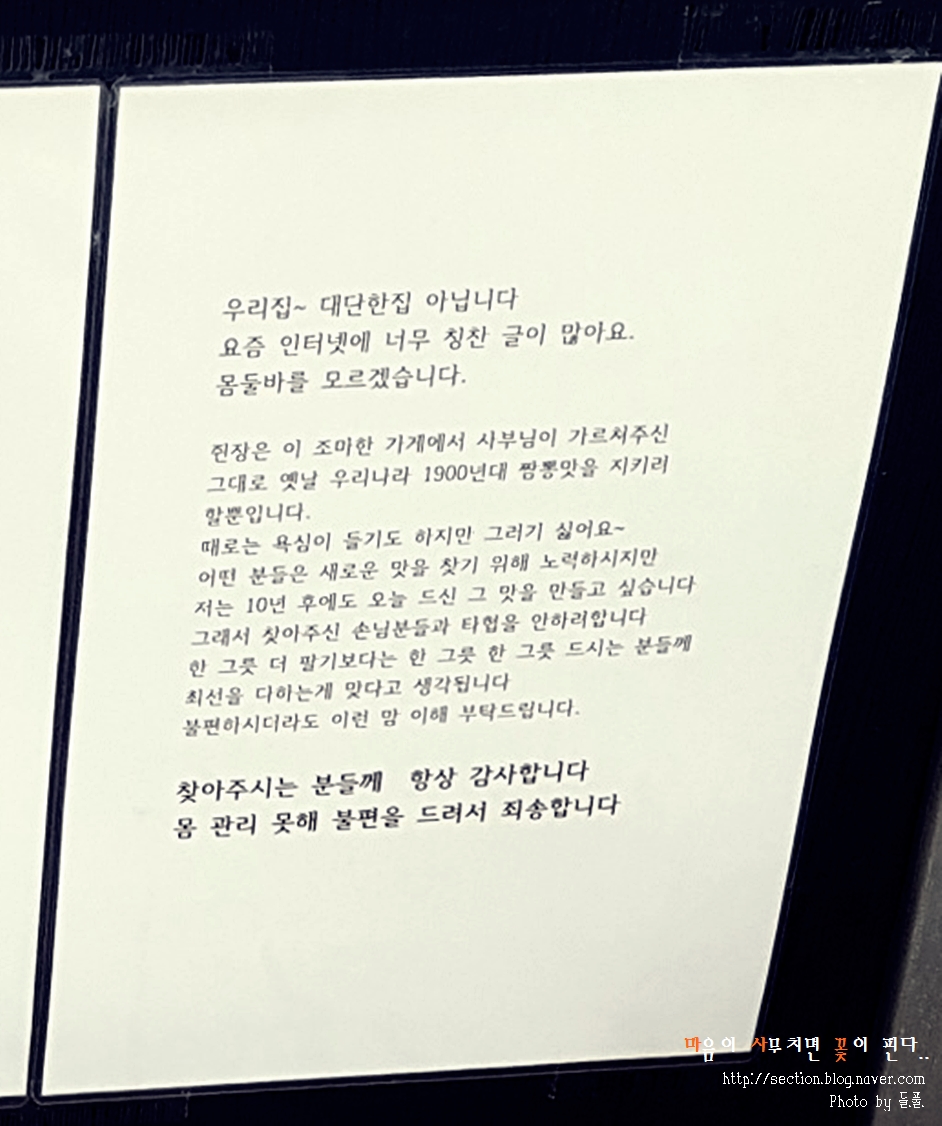 우리집~ 대단한집 아닙니다
요즘 인터넷에 너무 칭찬 글이 많아요.
몸둘바를 모르겠습니다.
쥔장은 이 조마한 가게에서 사부님이 가르쳐주신
그대로 옛날 우리나라 1900년대 짬뽕맛을 지키려
할뿐입니다.
때로는 욕심이 들기도 하지만 그러기 싫어요~
어떤 분들은 새로운 맛을 찾기 위해 노력하시지만
저는 10년 후에도 오늘 드신 그 맛을 만들고 싶습니다
그래서 찾아주신 손님분들과 타협을 안하려합니다
한 그릇 더 팔기보다는 한 그릇 한 그릇 드시는 분들께
최선을 다하는게 맞다고 생각됩니다
불편하시디라도 이런 맘 이해 부탁드립니다.
찾아주시는 분들께 항상 감사합니다
몸 관리 못해 불편을 드려서 죄송합니다
마음이 사무치면 꽃이 핀다..
http://section.blog.naver.com
Photo by 들풀